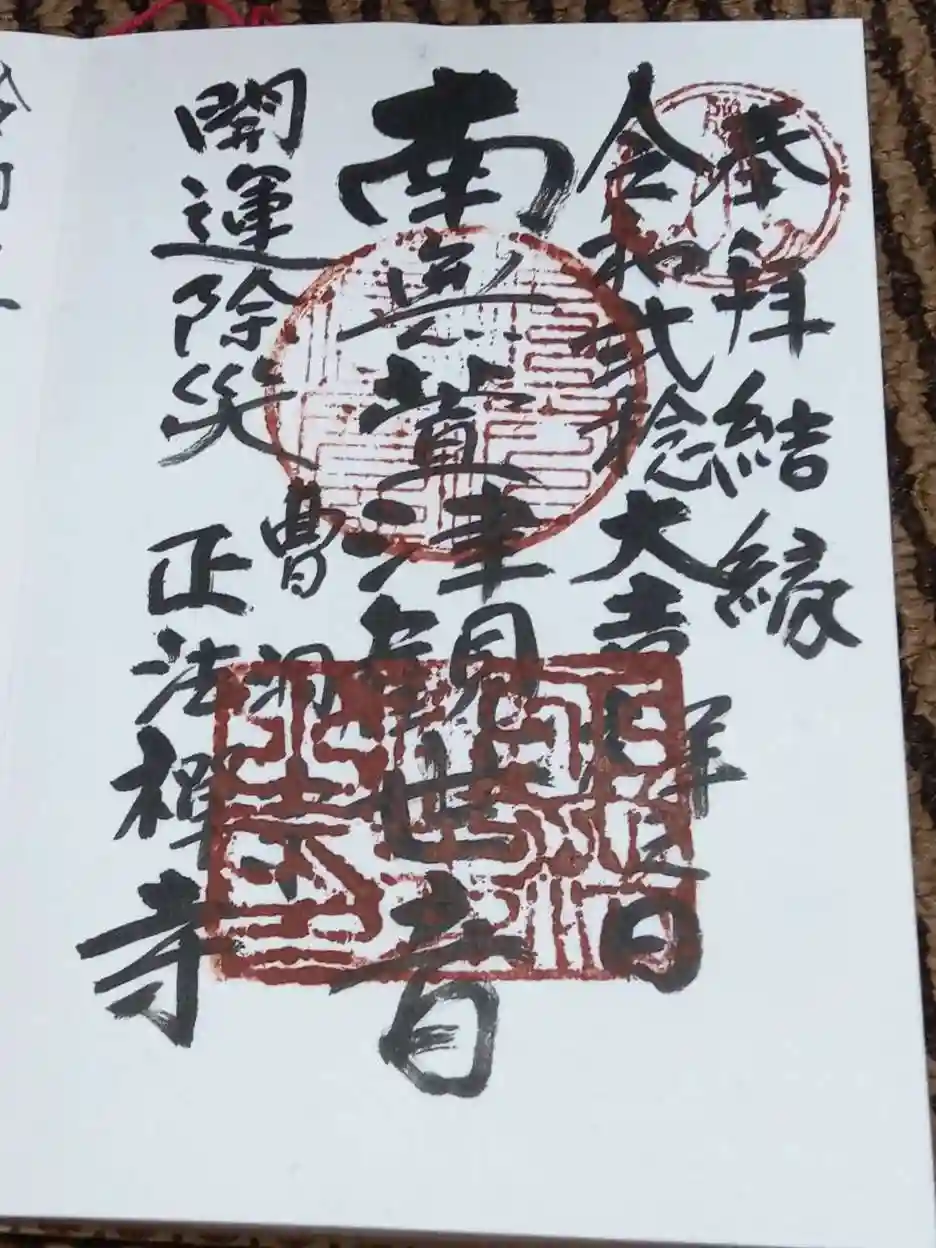 奉拝 結縁
令和弐稔大吉祥之日
南無萱津観世音
開運除災
曹洞宗
正法禅寺